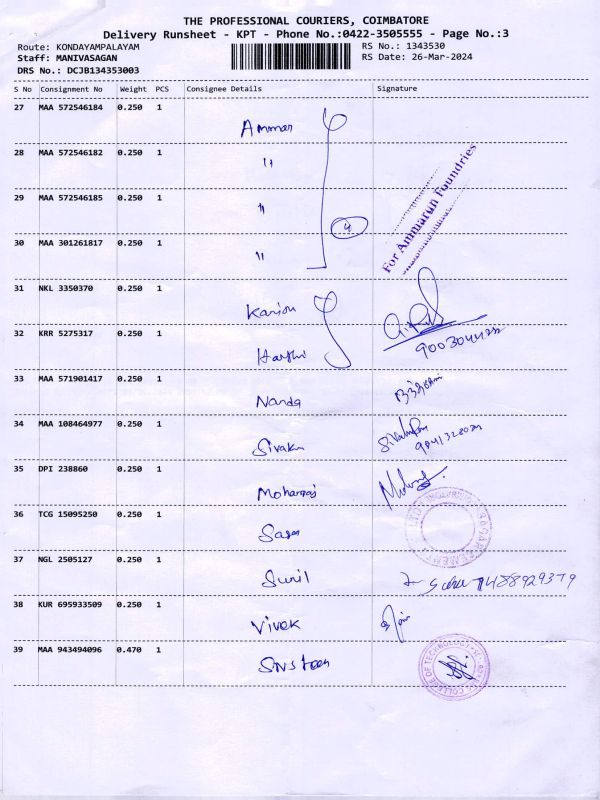 THE PROFESSIONAL COURIERS, COIMBATORE
Delivery Runsheet - KPT - Phone No.:0422-3505555 - Page No.:3
Route: KONDAYAMPALAYAM RS No.: 1343530
Staff: MANIVASAGAN RS Date: 26-Mar-2024
DRS No.: DCJB134353003
S No Consignment No Weight PCS Consignee Details Signature
27 MAA 572546184 0.250 1 Ammar
28 MAA 572546182 0.250 1 "
29 MAA 572546185 0.250 1 "
4
For Ammarun Foundries
30 MAA 301261817 0.250 1 "
31 NKL 3350370 0.250 1
32 KRR 5275317 0.250 1 Harshi
33 MAA 571901417 0.250 1 Nanda
34 MAA 108464977 0.250 1 Sivaku
35 DPI 238860 0.250 1 Mohanraj
36 TCG 15095250 0.250 1
37 NGL 2505127 0.250 1 Sunil
38 KUR 695933509 0.250 1 Vivek
39 MAA 943494096 0.470 1
COLLEGE OF TECHNOLOGY